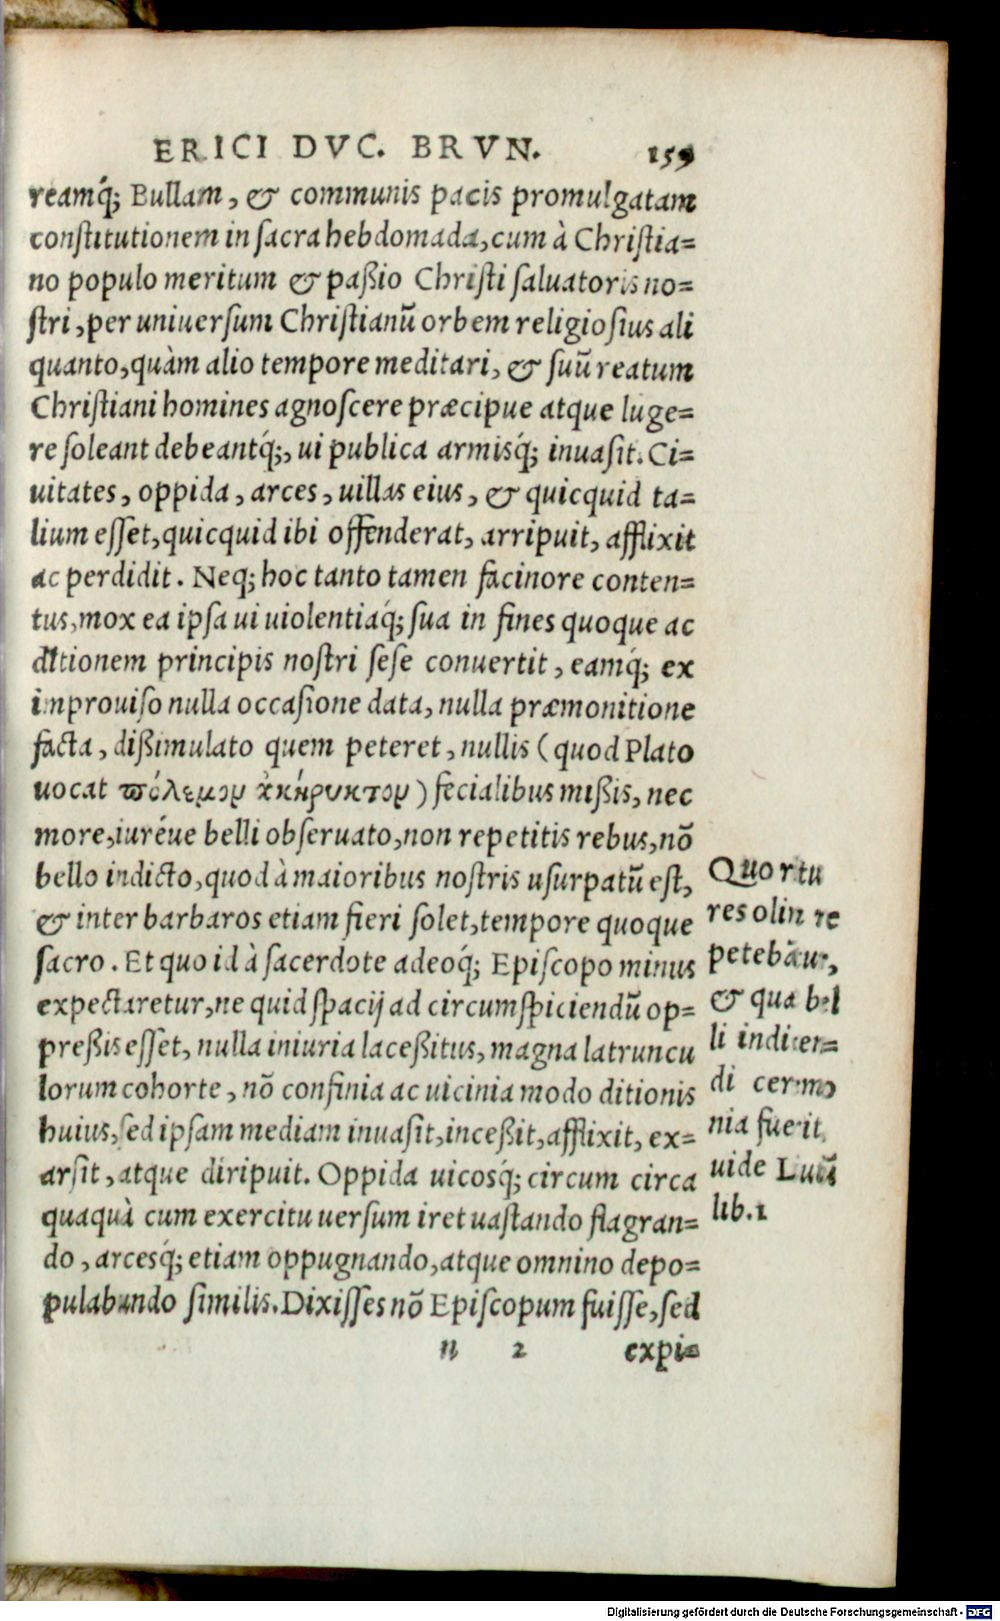 ERICI DVC. BRVN. 159
reamq́; Bullam, & communis pacis promulgatam
constitutionem in sacra hebdomada, cum à Christia=
no populo meritum & paßio Christi saluatoris no=
stri, per uniuersum Christianũ orbem religiosius ali
quanto, quàm alio tempore meditari, & suũ reatum
Christiani homines agnoscere præcipue atque luge=
re soleant debeantq́;, ui publica armisq́; inuasit. Ci=
uitates, oppida, arces, uillas eius, & quicquid ta=
lium esset, quicquid ibi offenderat, arripuit, afflixit
ac perdidit. Neq; hoc tanto tamen facinore conten=
tus, mox ea ipsa ui uiolentiaq́; sua in fines quoque ac
ditionem principis nostri sese conuertit, eamq́; ex
improuiso nulla occasione data, nulla præmonitione
facta, dißimulato quem peteret, nullis (quod Plato
uocat πόλεμον ἀκήρυκτον) fecialibus mißis, nec
more, iuréue belli obseruato, non repetitis rebus, nõ
bello indicto, quod à maioribus nostris usurpatũ est,
& inter barbaros etiam fieri solet, tempore quoque
sacro. Et quo id à sacerdote adeoq́; Episcopo minus
expectaretur, ne quid spacij ad circumspiciendũ op=
preßis esset, nulla iniuria laceßitus, magna latruncu
lorum cohorte, nõ confinia ac uicinia modo ditionis
huius, sed ipsam mediam inuasit, inceßit, afflixit, ex=
arsit, atque diripuit. Oppida uicosq́; circum circa
quaquà cum exercitu uersum iret uastando flagran=
do, arcesq́; etiam oppugnando, atque omnino depo=
pulabundo similis. Dixisses nõ Episcopum fuisse, sed
n 2 expi=
Quo rtu
res olin re
petebãur,
& qua bel
li indicen=
di ceremo
nia fuerit,
uide Luiũ
lib. 1
Digitalisierung gefördert durch die Deutsche Forschungsgemeinschaft - DFG